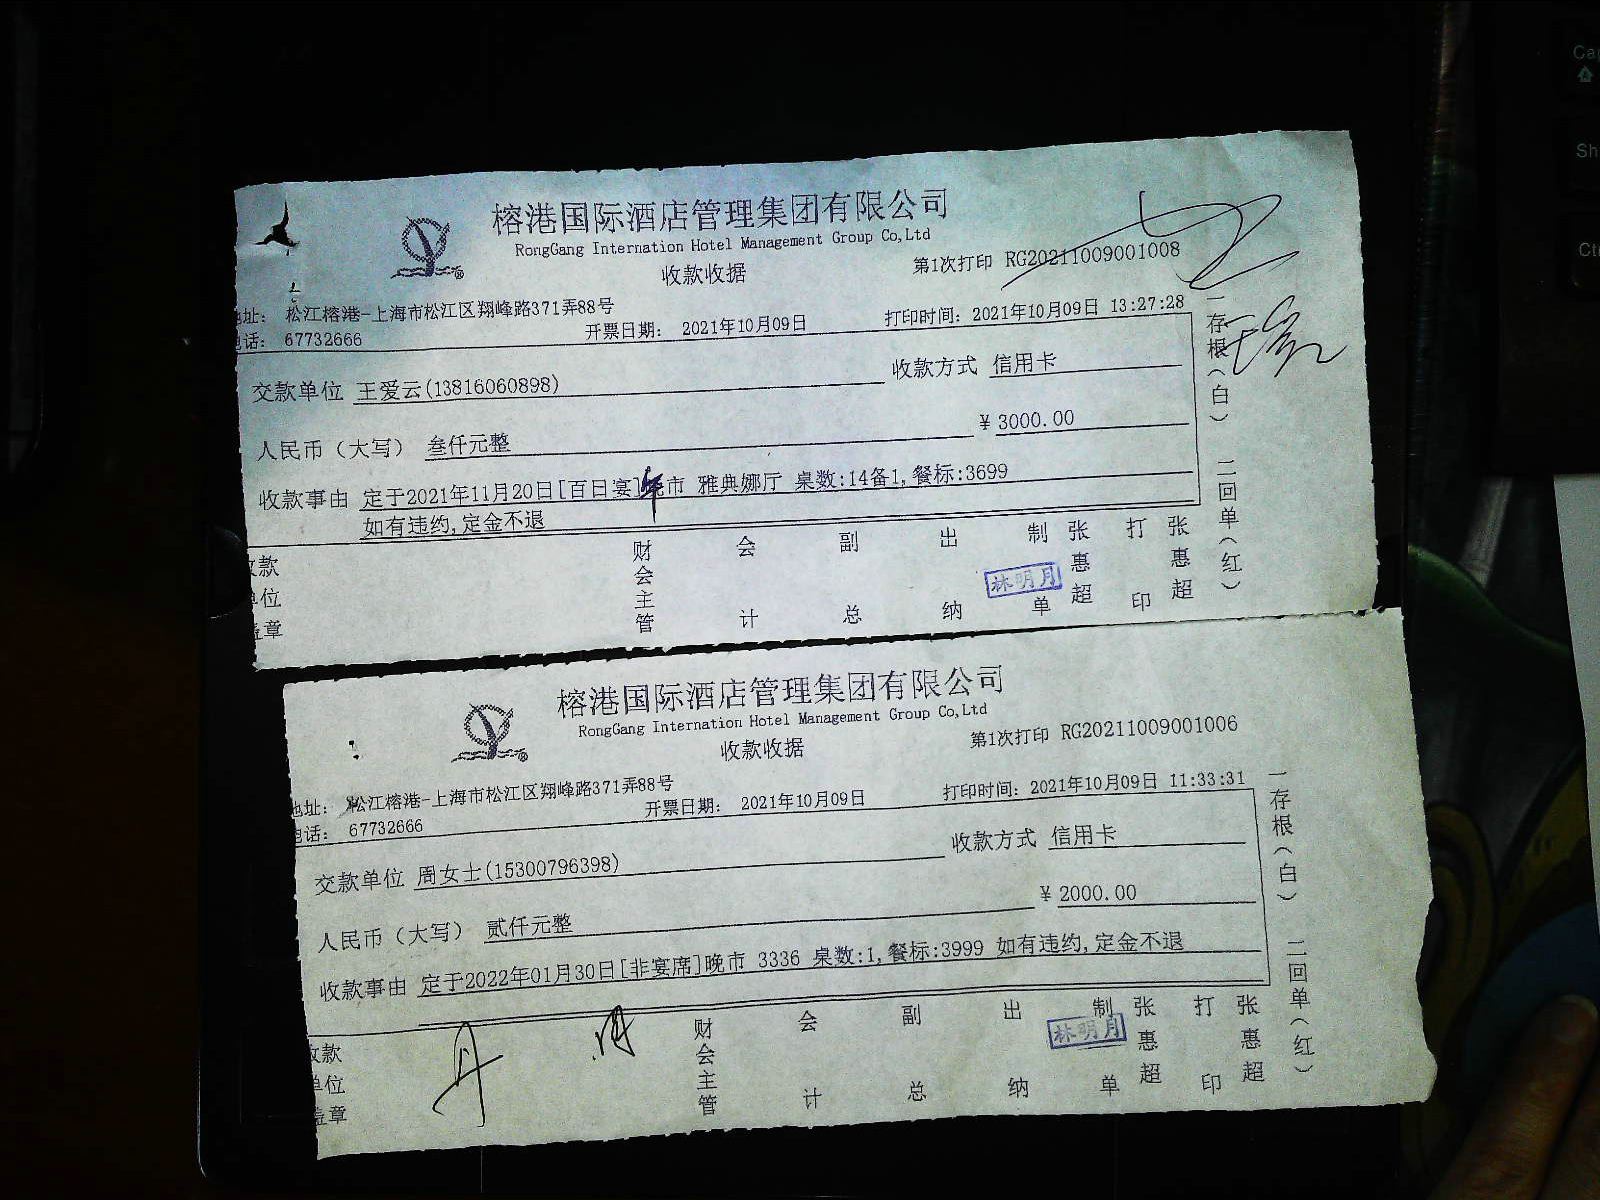 榕港国际酒店管理集团有限公司
RongGang Internation Hotel Management Group Co,Ltd
收款收据
第1次打印 RG20211009001008
地址: 松江榕港-上海市松江区翔峰路371弄88号
电话: 67732666
开票日期: 2021年10月09日
打印时间: 2021年10月09日 13:27:28
交款单位 王爱云(13816060898)
收款方式 信用卡
人民币（大写） 叁仟元整
¥ 3000.00
收款事由 定于2021年11月20日[百日宴]午市 雅典娜厅 桌数:14备1,餐标:3699
如有违约,定金不退
收款单位盖章
财会主管
会计
副总
出纳
林明月
制单
张惠超
打印
张惠超
一存根(白)
二回单(红)
榕港国际酒店管理集团有限公司
RongGang Internation Hotel Management Group Co,Ltd
收款收据
第1次打印 RG20211009001006
地址: 松江榕港-上海市松江区翔峰路371弄88号
电话: 67732666
开票日期: 2021年10月09日
打印时间: 2021年10月09日 11:33:31
交款单位 周女士(15300796398)
收款方式 信用卡
人民币（大写） 贰仟元整
¥ 2000.00
收款事由 定于2022年01月30日[非宴席]晚市 3336 桌数:1,餐标:3999 如有违约,定金不退
收款单位盖章
财会主管
会计
副总
出纳
林明月
制单
张惠超
打印
张惠超
一存根(白)
二回单(红)